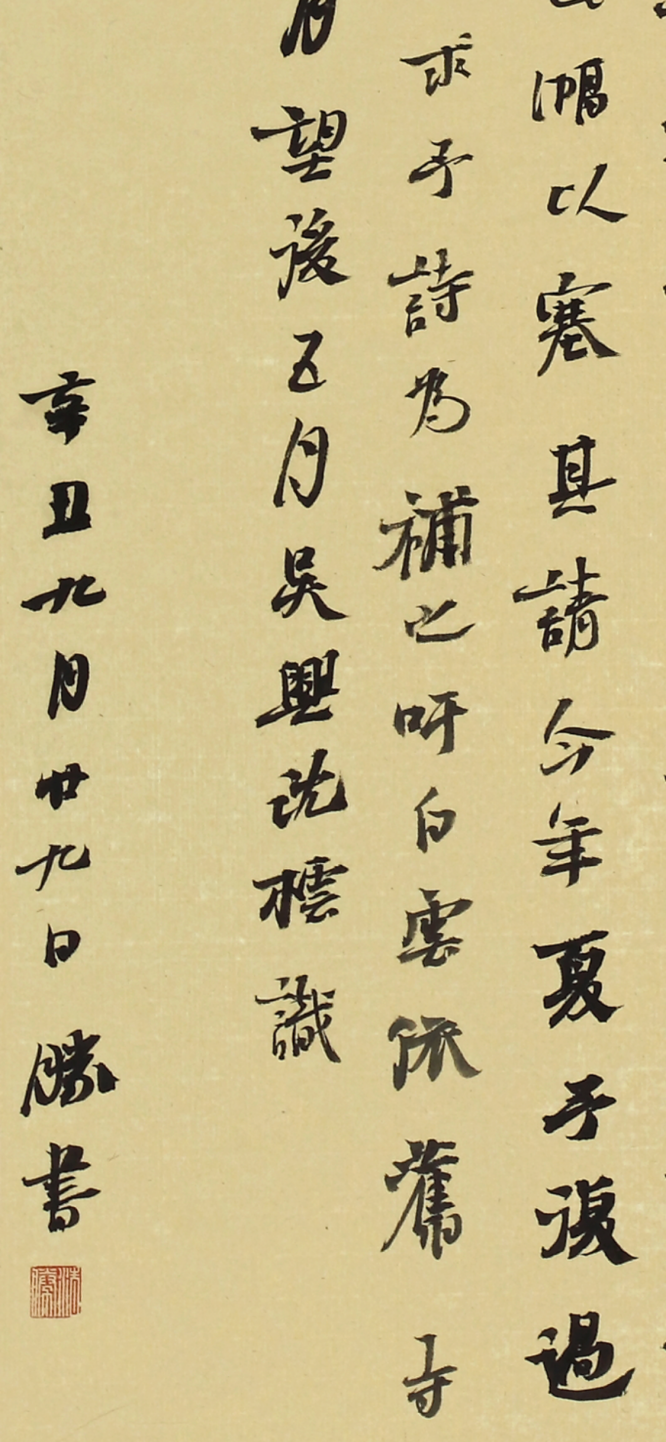 鴻以塞其請今年夏予復過
求予詩為補之吁白雲依舊寺
月望後五月吳興沈樗識
辛丑九月廿九日勝書